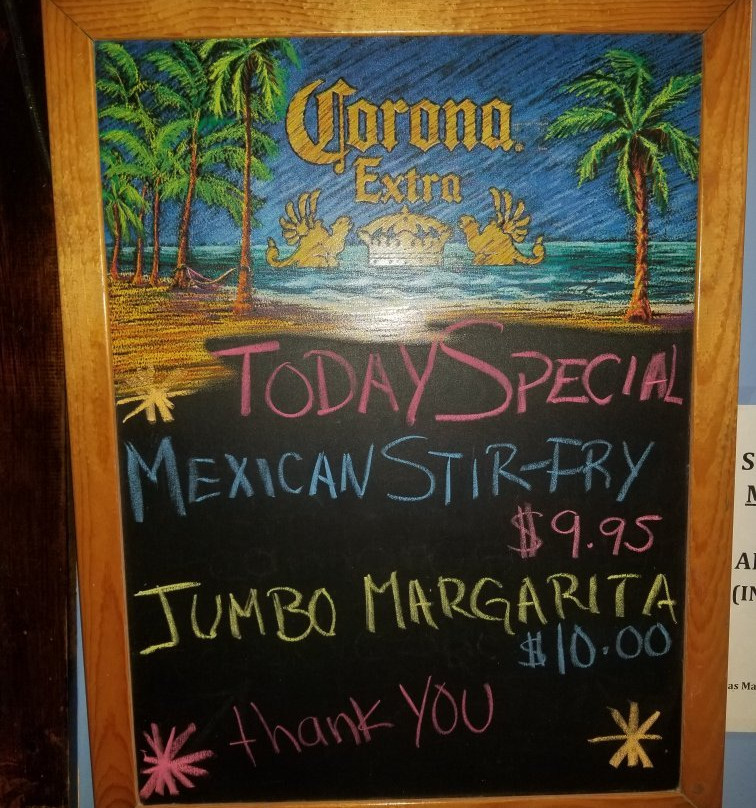 Corona
Extra
TODAY SPECIAL
MEXICAN STIR-FRY
$9.95
JUMBO MARGARITA
$10.00
thank YOU